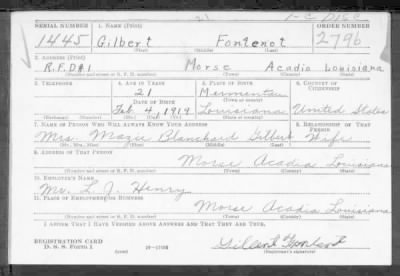 21 1-C DISC
SERIAL NUMBER 1. NAME (Print) ORDER NUMBER
1445 Gilbert Fontenot 2796
(First) (Middle) (Last)
2. ADDRESS (Print)
R.F.D#1 Morse Acadia Louisiana
(Number and street or R. F. D. number) (Town) (County) (State)
3. TELEPHONE 4. AGE IN YEARS 5. PLACE OF BIRTH 6. COUNTRY OF CITIZENSHIP
21 Mermentau
DATE OF BIRTH (Town or county)
Feb. 4, 1919 Louisiana United States
(Exchange) (Number) (Mo.) (Day) (Yr.) (State or country)
7. NAME OF PERSON WHO WILL ALWAYS KNOW YOUR ADDRESS 8. RELATIONSHIP OF THAT PERSON
Mrs. Mazie Blanchard Gilbert Wife
(Mr., Mrs., Miss) (First) (Middle) (Last)
9. ADDRESS OF THAT PERSON
Morse Acadia Louisiana
(Number and street or R. F. D. number) (Town) (County) (State)
10. EMPLOYER'S NAME
Mr. L. J. Henry
11. PLACE OF EMPLOYMENT OR BUSINESS
Morse Acadia Louisiana
(Number and street or R. F. D. number) (Town) (County) (State)
I AFFIRM THAT I HAVE VERIFIED ABOVE ANSWERS AND THAT THEY ARE TRUE.
REGISTRATION CARD
D. S. S. Form 1 (over) 16—17105 (Registrant's signature)